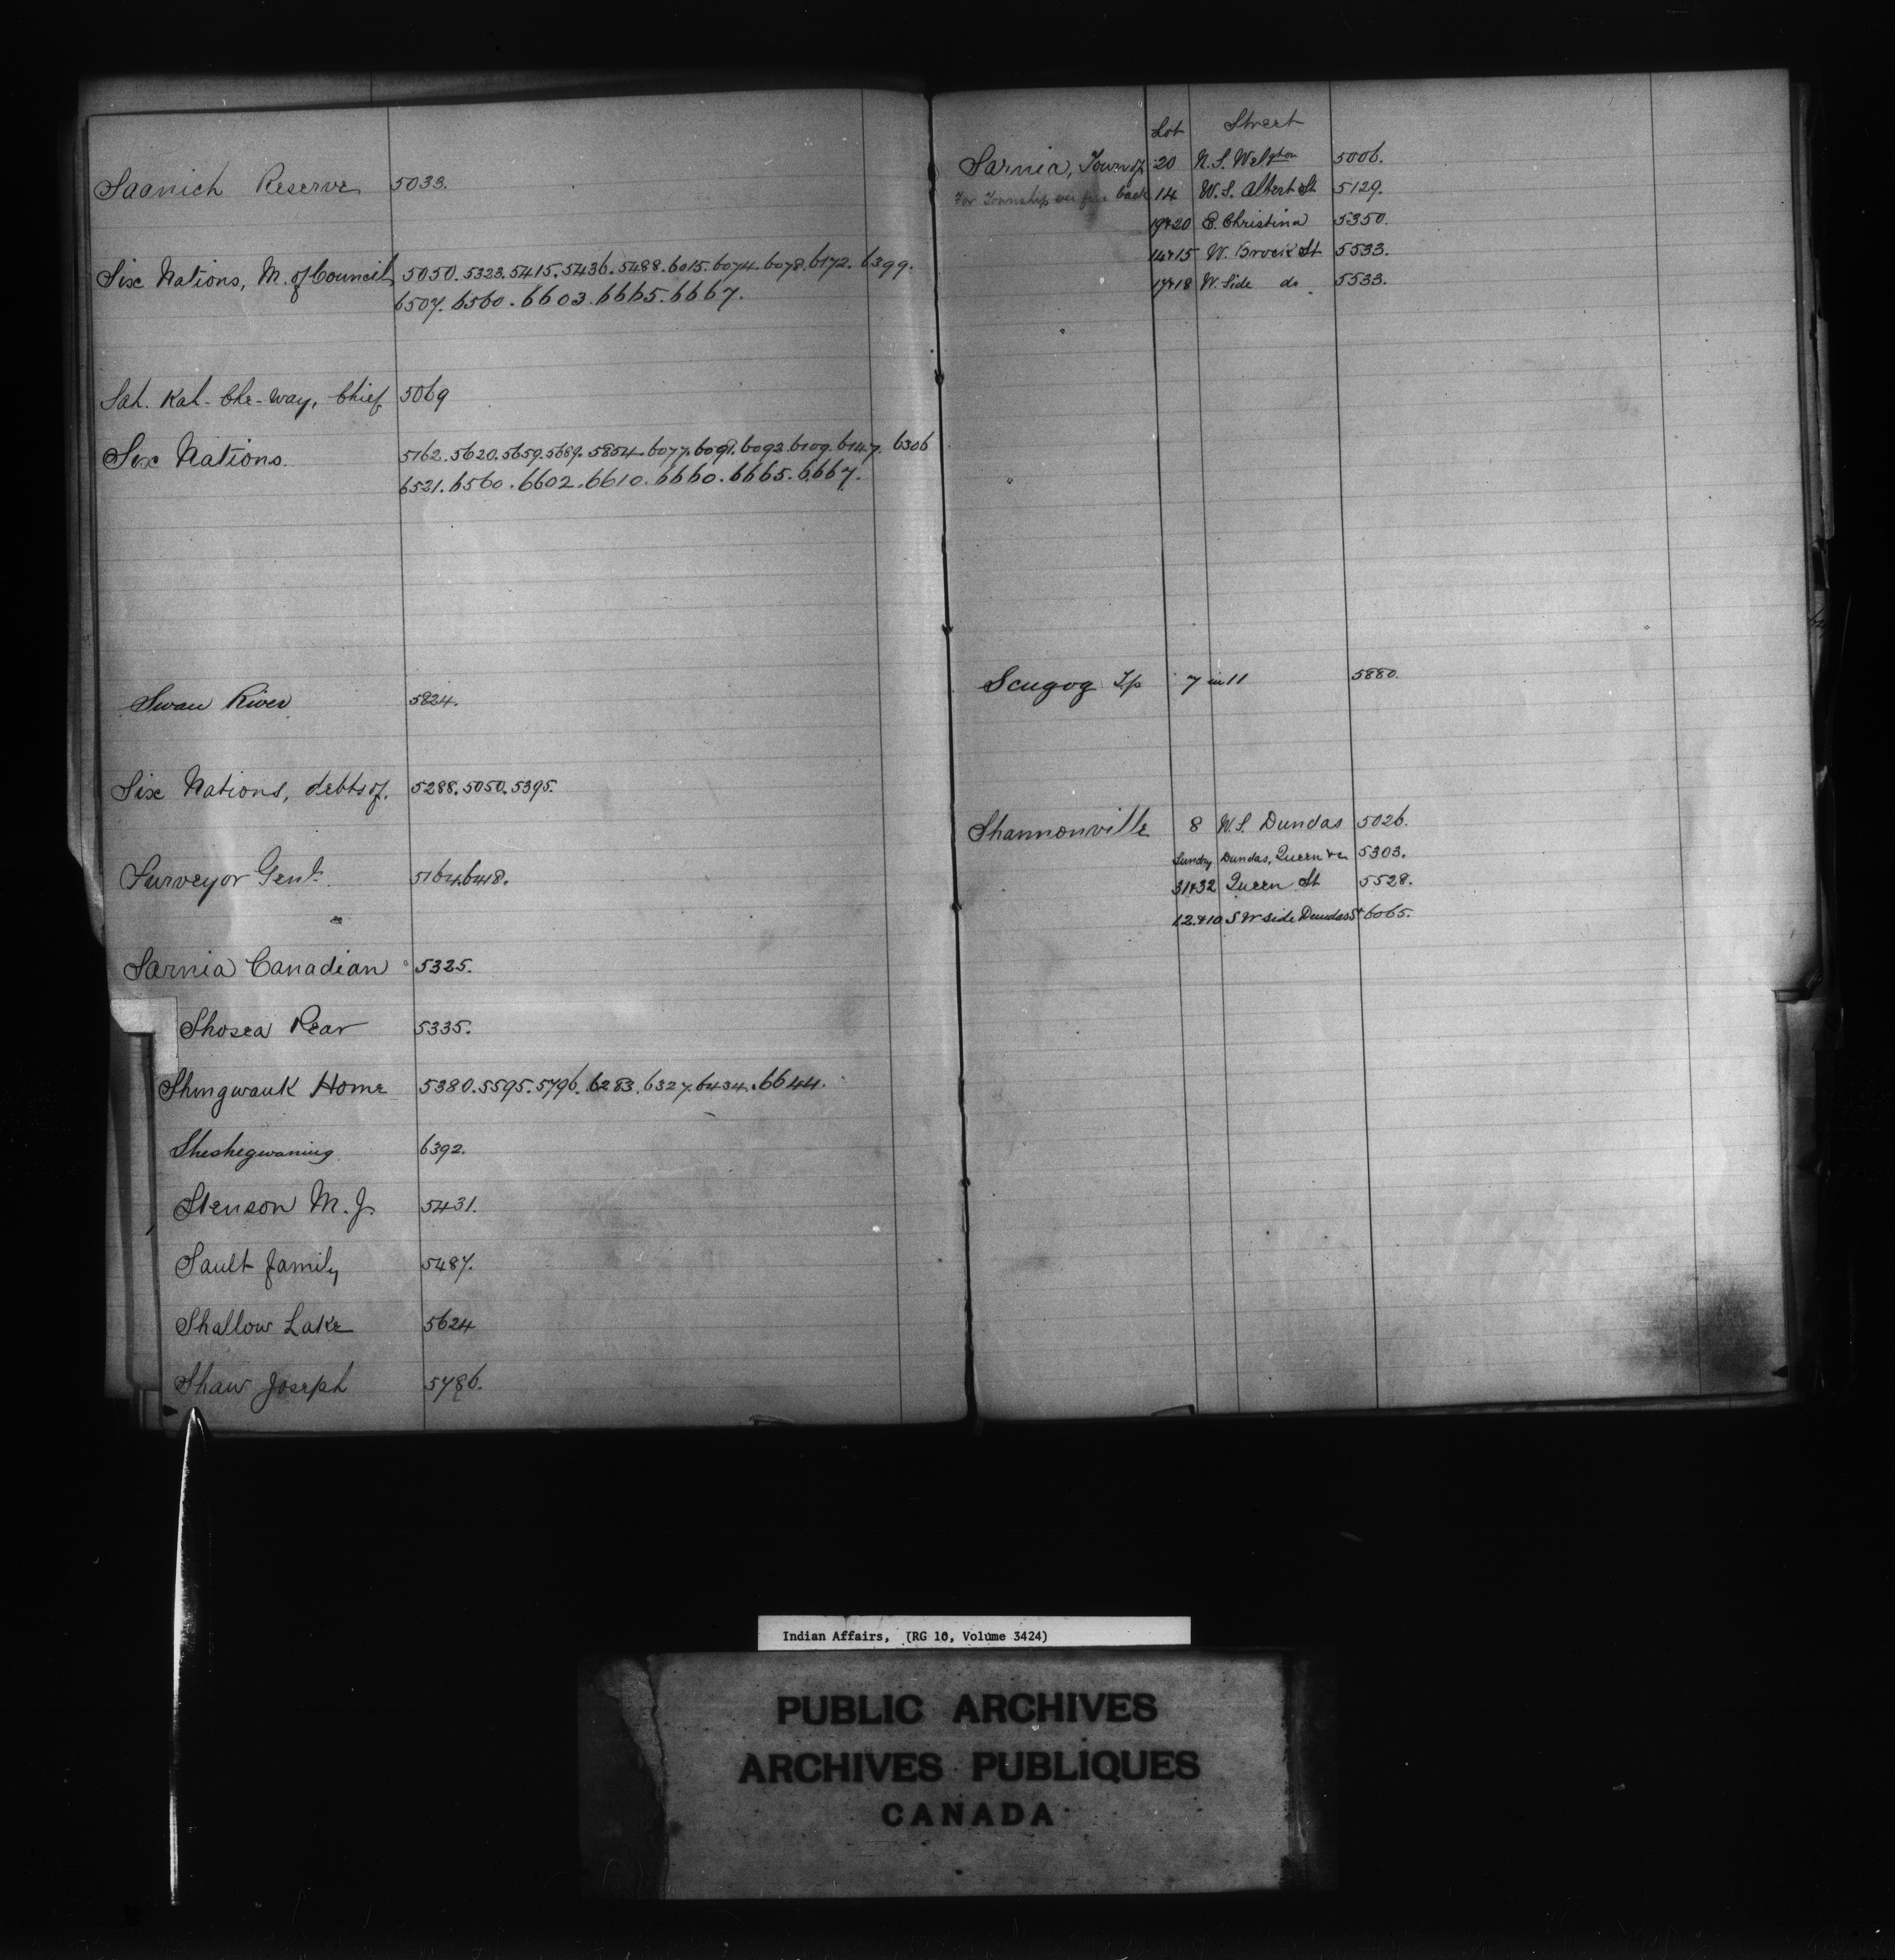 Saanich Reserve 5033.
Six Nations, M. of Council 5050. 5323. 5415. 5436. 5488. 6015. 6074. 6078. 6172. 6399.
6507. 6560. 6603. 6665. 6667.
Sah. Kah-Che-way, Chief 5069
Six Nations. 5162. 5620. 5659. 5689. 5854. 6077. 6091. 6093. 6109. 6147. 6306
6521. 6560. 6602. 6610. 6660. 6665. 6667.
Swan River 5824.
Six Nations, debts of. 5288. 5050. 5395.
Surveyor Genl. 5164. 6418.
Sarnia Canadian 5325.
Shosea Rear 5335.
Shingwauk Home 5380. 5595. 5796. 6283. 6327. 6434. 6644.
Sheshegwaning 6392.
Stenson M. J. 5431.
Sault family 5487.
Shallow Lake 5624
Shaw Joseph 5786.
Lot Street
Sarnia, Town of 20 N. S. Welgton 5006.
For Township see back 14 W. S. Albert St 5129.
19+20 E. Christina 5350.
14+15 W. Brock St 5533.
17+18 W. Side do. 5533.
Scugog Tp 7 in 11 5880.
Shannonville 8 W. S. Dundas 5026.
Sundry Dundas, Queen &c 5303.
31+32 Queen St 5528.
12.+10 S W side Dundas St 6065.
Indian Affairs, (RG 10, Volume 3424)
PUBLIC ARCHIVES
ARCHIVES PUBLIQUES
CANADA